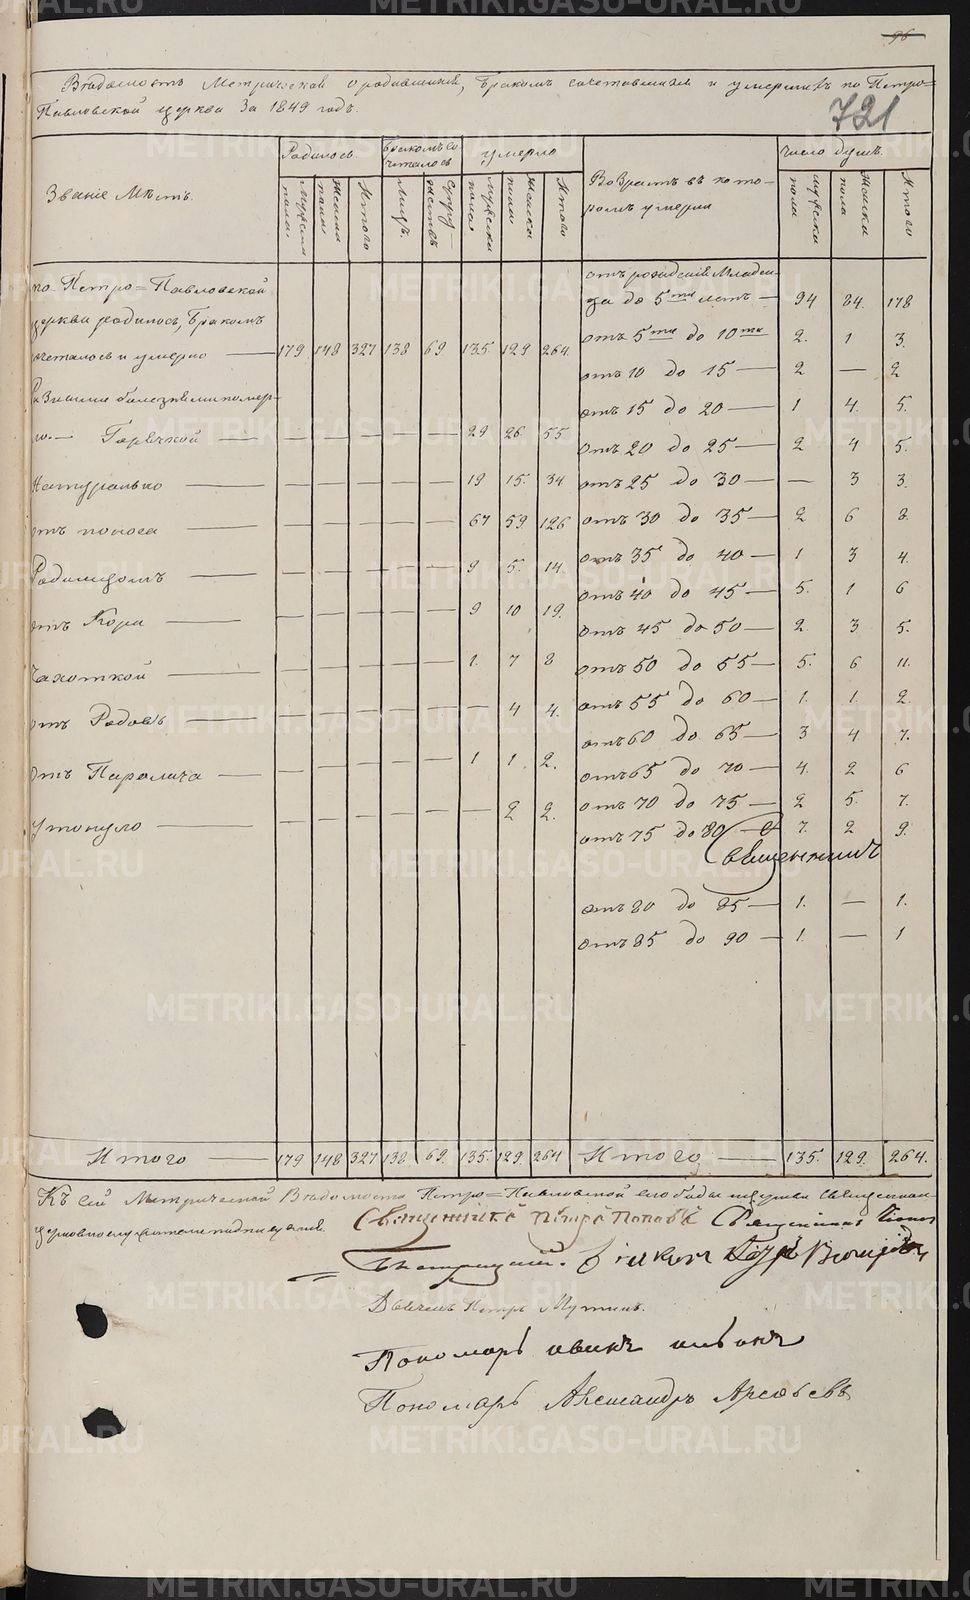 96
Вѣдомость Метрическая о родившихся, бракомъ сочетавшихся и умершихъ по Петро=
Павловской церкви за 1849 годъ.
721
Званіе Мѣстъ.
Родилось
бракомъ сочеталось
умерло
Возрастъ въ которомъ умерли
число душъ.
Мужска пола
Женска пола
Итого
Лицъ.
супружествъ
Мужска пола
Женска пола
Итого
Мужска пола
Женска пола
Итого
по Петро=Павловской
церкви родилось, бракомъ
сочеталось и умерло — 179 148 327 138 69 135 129 264
Разными болезнями помер-
ло. — Горячкой — — — — — — 29 26 55
Натурально — — — — — — 19 15. 34
отъ поноса — — — — — — 67 59 126
Родимцомъ — — — — — — 9 5. 14.
отъ Кори — — — — — — 9 10 19.
Чахоткой — — — — — — 1. 7 8
отъ Родовъ — — — — — — — 4 4.
отъ Паролича — — — — — — 1 1 2.
Утонуло — — — — — — 2 2.
отъ рожденія Младен-
ца до 5ти летъ — 94 84. 178
отъ 5ти до 10ти 2. 1 3.
отъ 10 до 15 — 2 — 2
отъ 15 до 20 — 1 4. 5.
отъ 20 до 25 — 2 4 5.
отъ 25 до 30 — — 3 3.
отъ 30 до 35 — 2 6 8.
отъ 35 до 40 — 1 3 4.
отъ 40 до 45 — 5. 1 6
отъ 45 до 50 — 2. 3 5.
отъ 50 до 55 — 5. 6 11.
отъ 55 до 60 — 1. 1. 2.
отъ 60 до 65 — 3 4 7.
отъ 65 до 70 — 4. 2 6
отъ 70 до 75 — 2 5. 7.
отъ 75 до 80 — 7. 2 9.
отъ 80 до 85 — 1. — 1.
отъ 85 до 90 — 1. — 1
Итого — 179 148 327 138 69. 135. 129. 264 Итого — 135. 129. 264.
Къ сей Метрической Вѣдомости Петро=Павловской церкви священно
церковнослужители подписуемся
Священникъ Петръ Поповъ Священникъ
Діаконъ
Дьячекъ Петръ Мутинъ.
Пономарь иванъ
Пономарь Александръ Арсеньевъ
METRIKI.GASO-URAL.RU